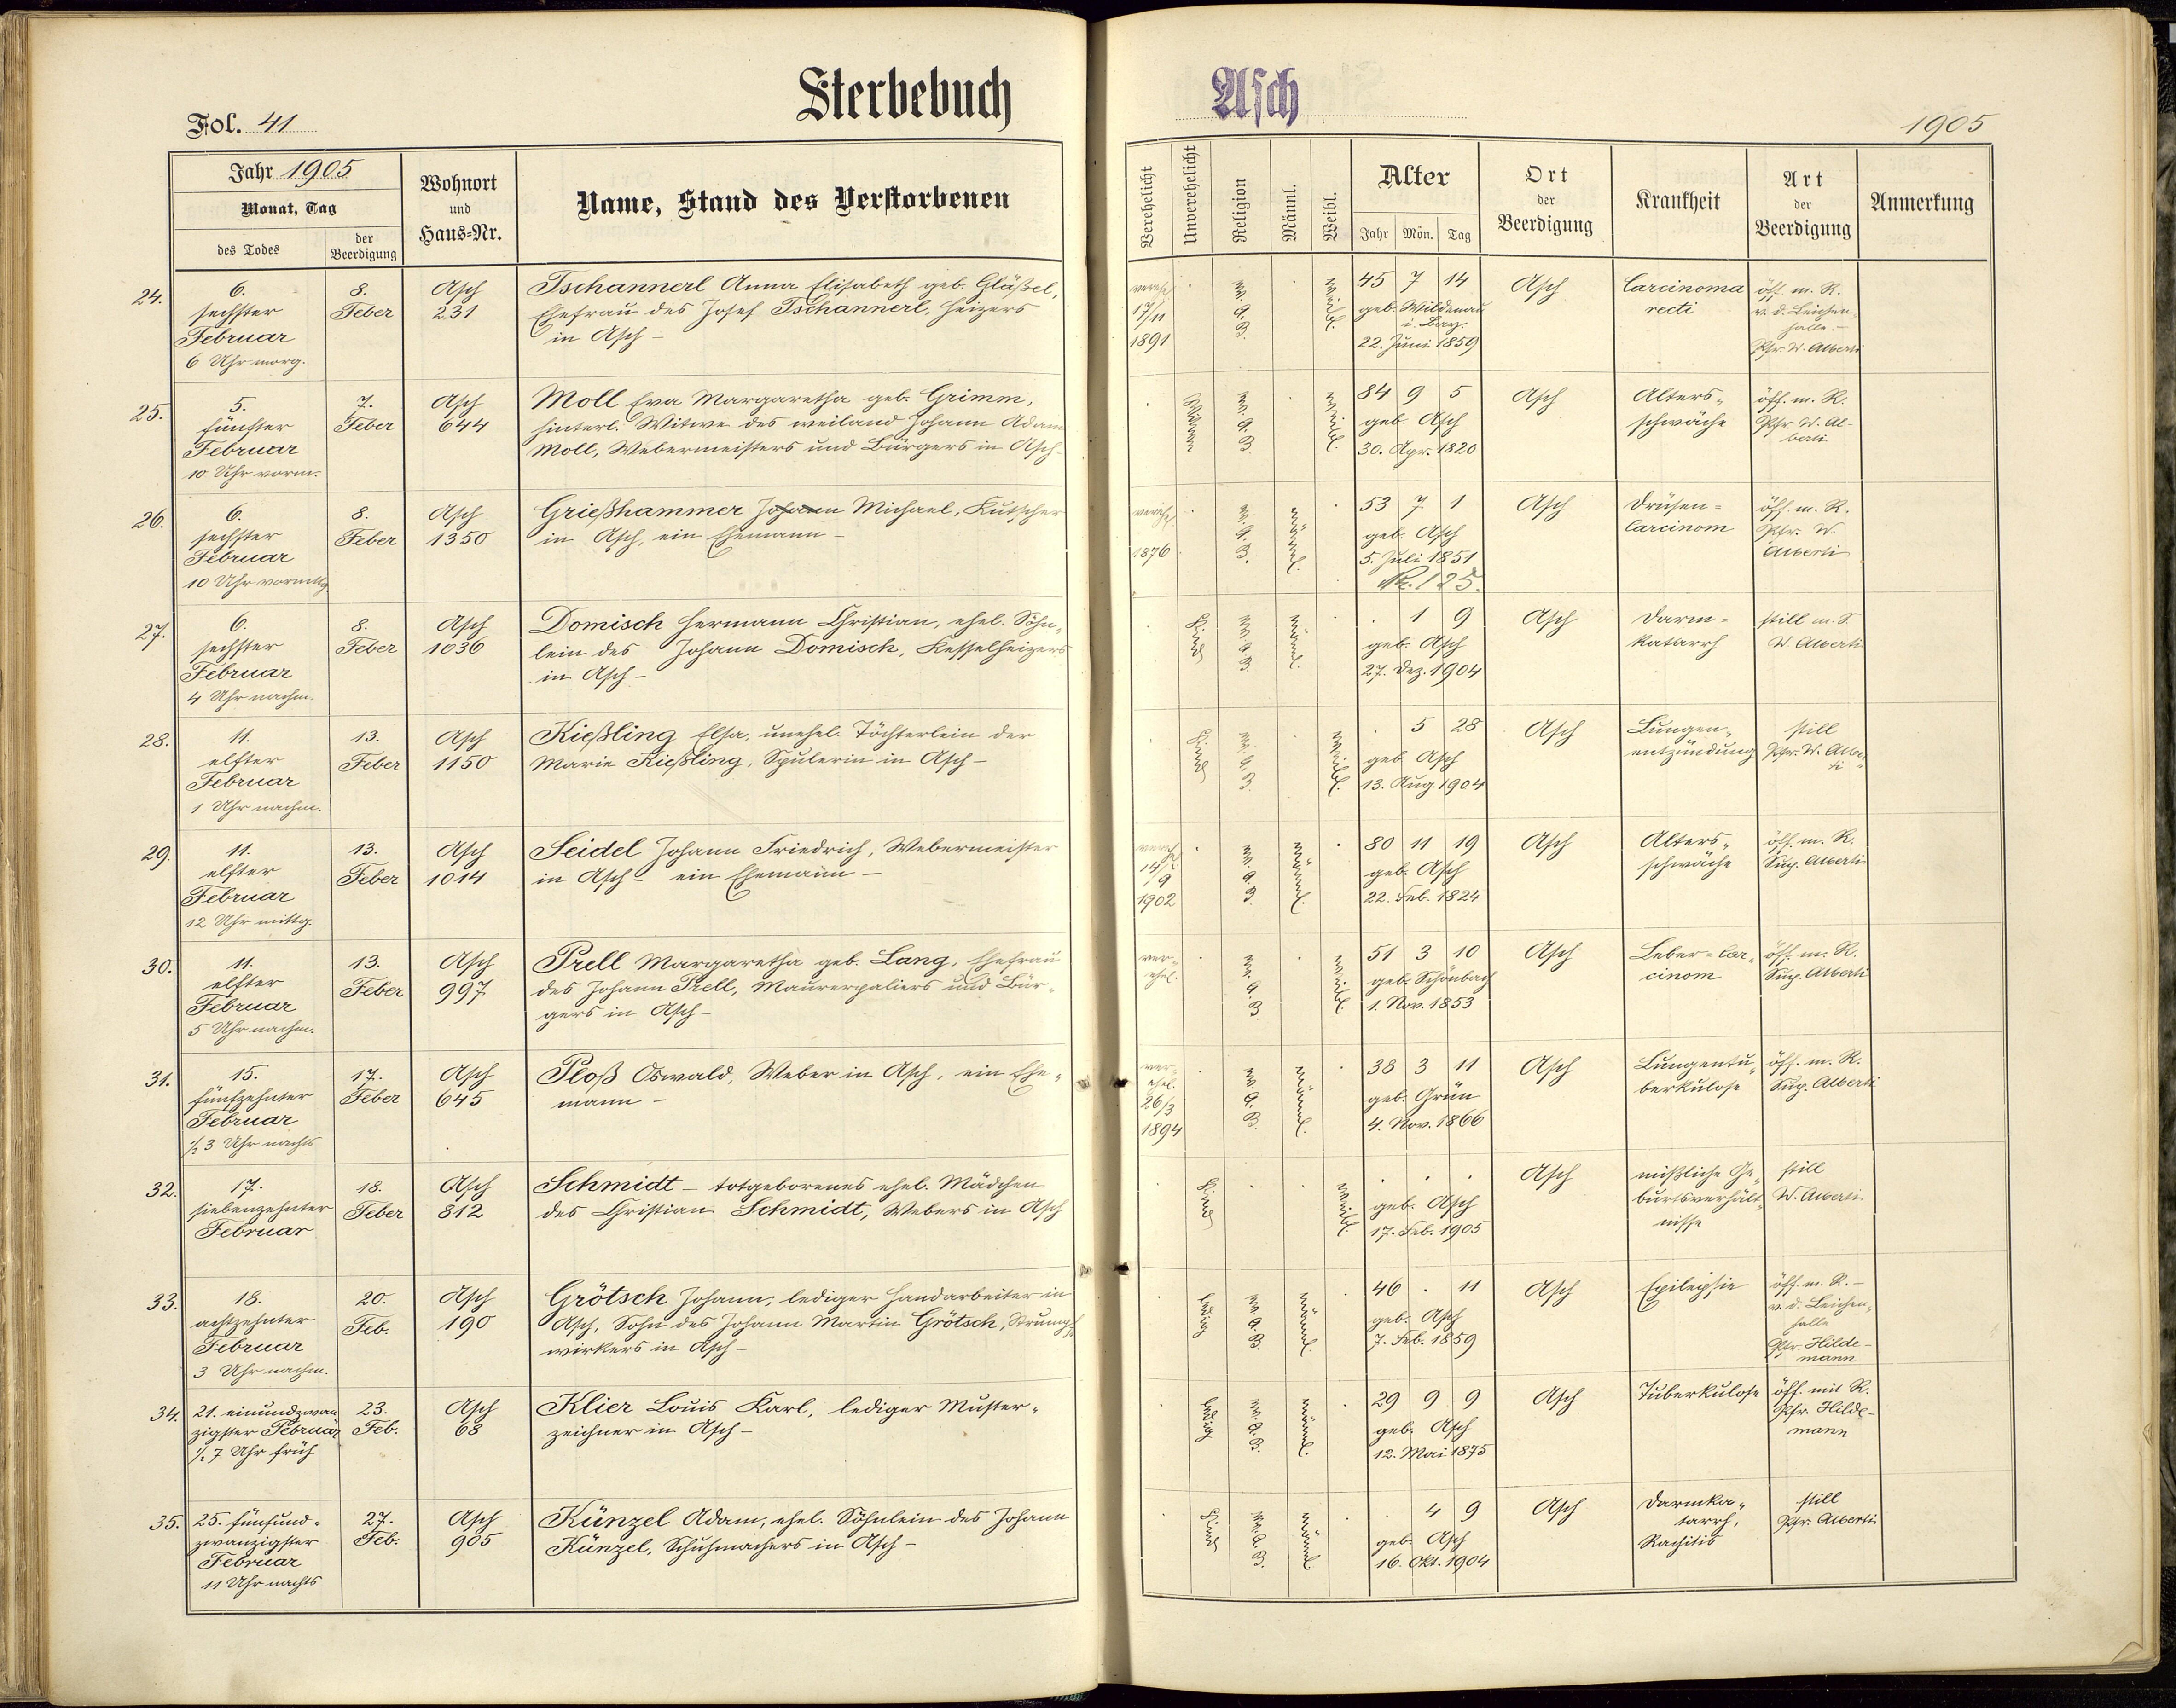 Sterbebuch
Asch
Fol. 41
1905
Jahr 1905
Monat, Tag
des Todes
der Beerdigung
Wohnort
und
Haus=Nr.
Name, Stand des Verstorbenen
Verehelicht
Unverehelicht
Religion
Männl.
Weibl.
Alter
Jahr Mon. Tag
Ort
der
Beerdigung
Krankheit
Art
der
Beerdigung
Anmerkung
24. 6. 8. Asch Tschannerl Anna Elisabeth geb. Gläßel,
sechster Feber 231 Ehefrau des Josef Tschannerl, Heizers
Februar in Asch –
6 Uhr morg.
17/11
1891
ev. A. B. weibl.
45 7 14 Asch Carcinoma öff. m. R.
geb. Wildenau recti v. d. Leichen
i. Bay. halle. –
22. Juni 1859 Pfr. W. Alberti
25. 5. 7. Asch Moll Eva Margaretha geb. Grimm,
fünfter Feber 644 hinterl. Witwe des weiland Johann Adam
Februar Moll, Webermeisters und Bürgers in Asch –
10 Uhr vorm.
Witwe ev. A. B. weibl.
84 9 5 Asch Alters- öff. m. R.
geb. Asch schwäche Pfr. W. Al-
30. Apr. 1820 berti
26. 6. 8. Asch Grießhammer Johann Michael, Kutscher
sechster Feber 1350 in Asch, ein Ehemann –
Februar
10 Uhr vormittg.
verehel.
1876
ev. A. B. männl.
53 7 1 Asch Drüsen= öff. m. R.
geb. Asch Carcinom Pfr. W.
5. Juli 1851 Alberti
No. 125.
27. 6. 8. Asch Domisch Hermann Christian, ehel. Söhn-
sechster Feber 1036 lein des Johann Domisch, Kesselheizers
Februar in Asch –
4 Uhr nachm.
Kind ev. A. B. männl.
. 1 9 Asch Darm= still m. S.
geb. Asch katarrh W Alberti
27. Dez. 1904
28. 11. 13. Asch Kießling Elsa, unehel. Töchterlein der
elfter Feber 1150 Marie Kießling, Spulerin in Asch –
Februar
1 Uhr nachm.
Kind ev. A. B. weibl.
. 5 28 Asch Lungen- still
geb. Asch entzündung Pfr. W. Alber-
13. Aug. 1904 ti
29. 11. 13. Asch Seidel Johann Friedrich, Webermeister
elfter Feber 1014 in Asch – ein Ehemann –
Februar
12 Uhr mittg.
14/9
1902
ev. A. B. männl.
80 11 19 Asch Alters- öff. m. R.
geb. Asch schwäche Sup. Alberti
22. Feb. 1824
30. 11. 13. Asch Prell Margaretha geb. Lang, Ehefrau
elfter Feber 997 des Johann Prell, Maurerpaliers und Bür-
Februar gers in Asch –
5 Uhr nachm.
ver-
ehel.
ev. A. B. weibl.
51 3 10 Asch Leber=Car- öff. m. R.
geb. Schönbach cinom Sup. Alberti
1. Nov. 1853
31. 15. 17. Asch Ploß Oswald, Weber in Asch, ein Ehe-
fünfzehnter Feber 645 mann –
Februar
½3 Uhr nachts
ver-
ehel.
26/3
1894
ev. A. B. männl.
38 3 11 Asch Lungentu- öff. m. R.
geb. Grün berkulose Sup. Alberti
4. Nov. 1866
32. 17. 18. Asch Schmidt – totgeborenes ehel. Mädchen
siebenzehnter Feber 812 des Christian Schmidt, Webers in Asch
Februar
Kind weibl.
Asch mißliche Ge- still
geb. Asch burtsverhält- W. Alberti
17. Feb. 1905 nisse
33. 18. 20. Asch Grötsch Johann, lediger Handarbeiter in
achtzehnter Feb. 190 Asch, Sohn des Johann Martin Grötsch, Strumpf-
Februar wirkers in Asch –
3 Uhr nachm.
ledig ev. A. B. männl.
46 . 11 Asch Epilepsie öff. m. R. –
geb. Asch v. d. Leichen-
7. Feb. 1859 halle
Pfr. Hilde-
mann
34. 21. einundzwan 23. Asch Klier Louis Karl, lediger Muster-
zigster Februar Feb. 68 zeichner in Asch –
½7 Uhr früh
ledig ev. A. B. männl.
29 9 9 Asch Tuberkulose öff. mit R.
geb. Asch Pfr. Hilde-
12. Mai 1875 mann
35. 25. fünfund- 27. Asch Künzel Adam, ehel. Söhnlein des Johann
zwanzigster Feb. 905 Künzel, Schuhmachers in Asch –
Februar
11 Uhr nachts
Kind ev. A. B. männl.
. 4 9 Asch Darmka- still
geb. Asch tarrh, Pfr. Alberti
16. Okt. 1904 Rachitis